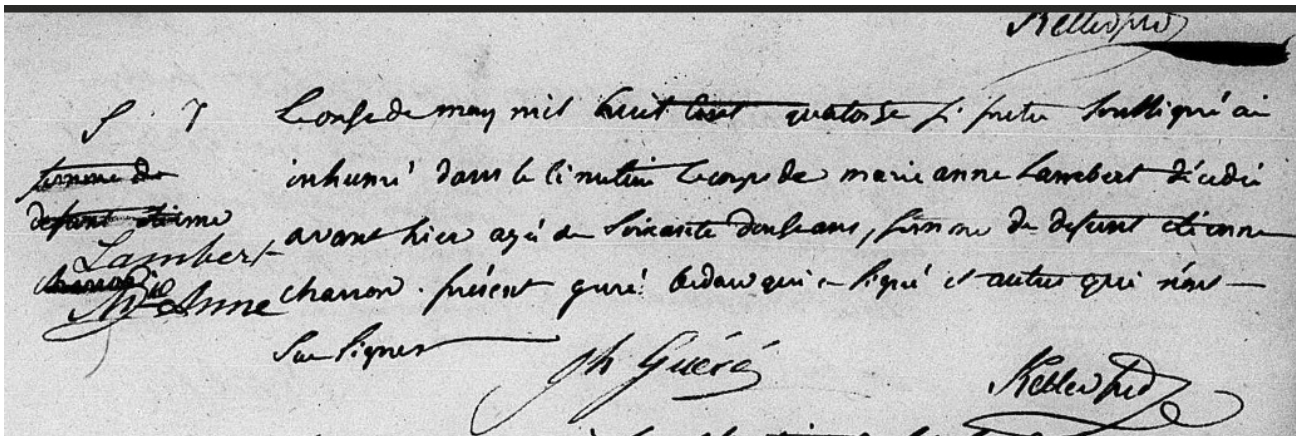 Keller ptre
S. 7
femme de
defunt etienne
Lambert
charron
Mie Anne
Le onse de may mil huit cent quatorse je pretre soussigné ai
inhumé dans le cimetiere le corps de marie anne Lambert décedée
avant hier agée de soixante douse ans, femme de defunt etienne
charron. présent guéré bedau qui a signé et autres qui n'ont
su signer
Jh Guéré
Keller ptre